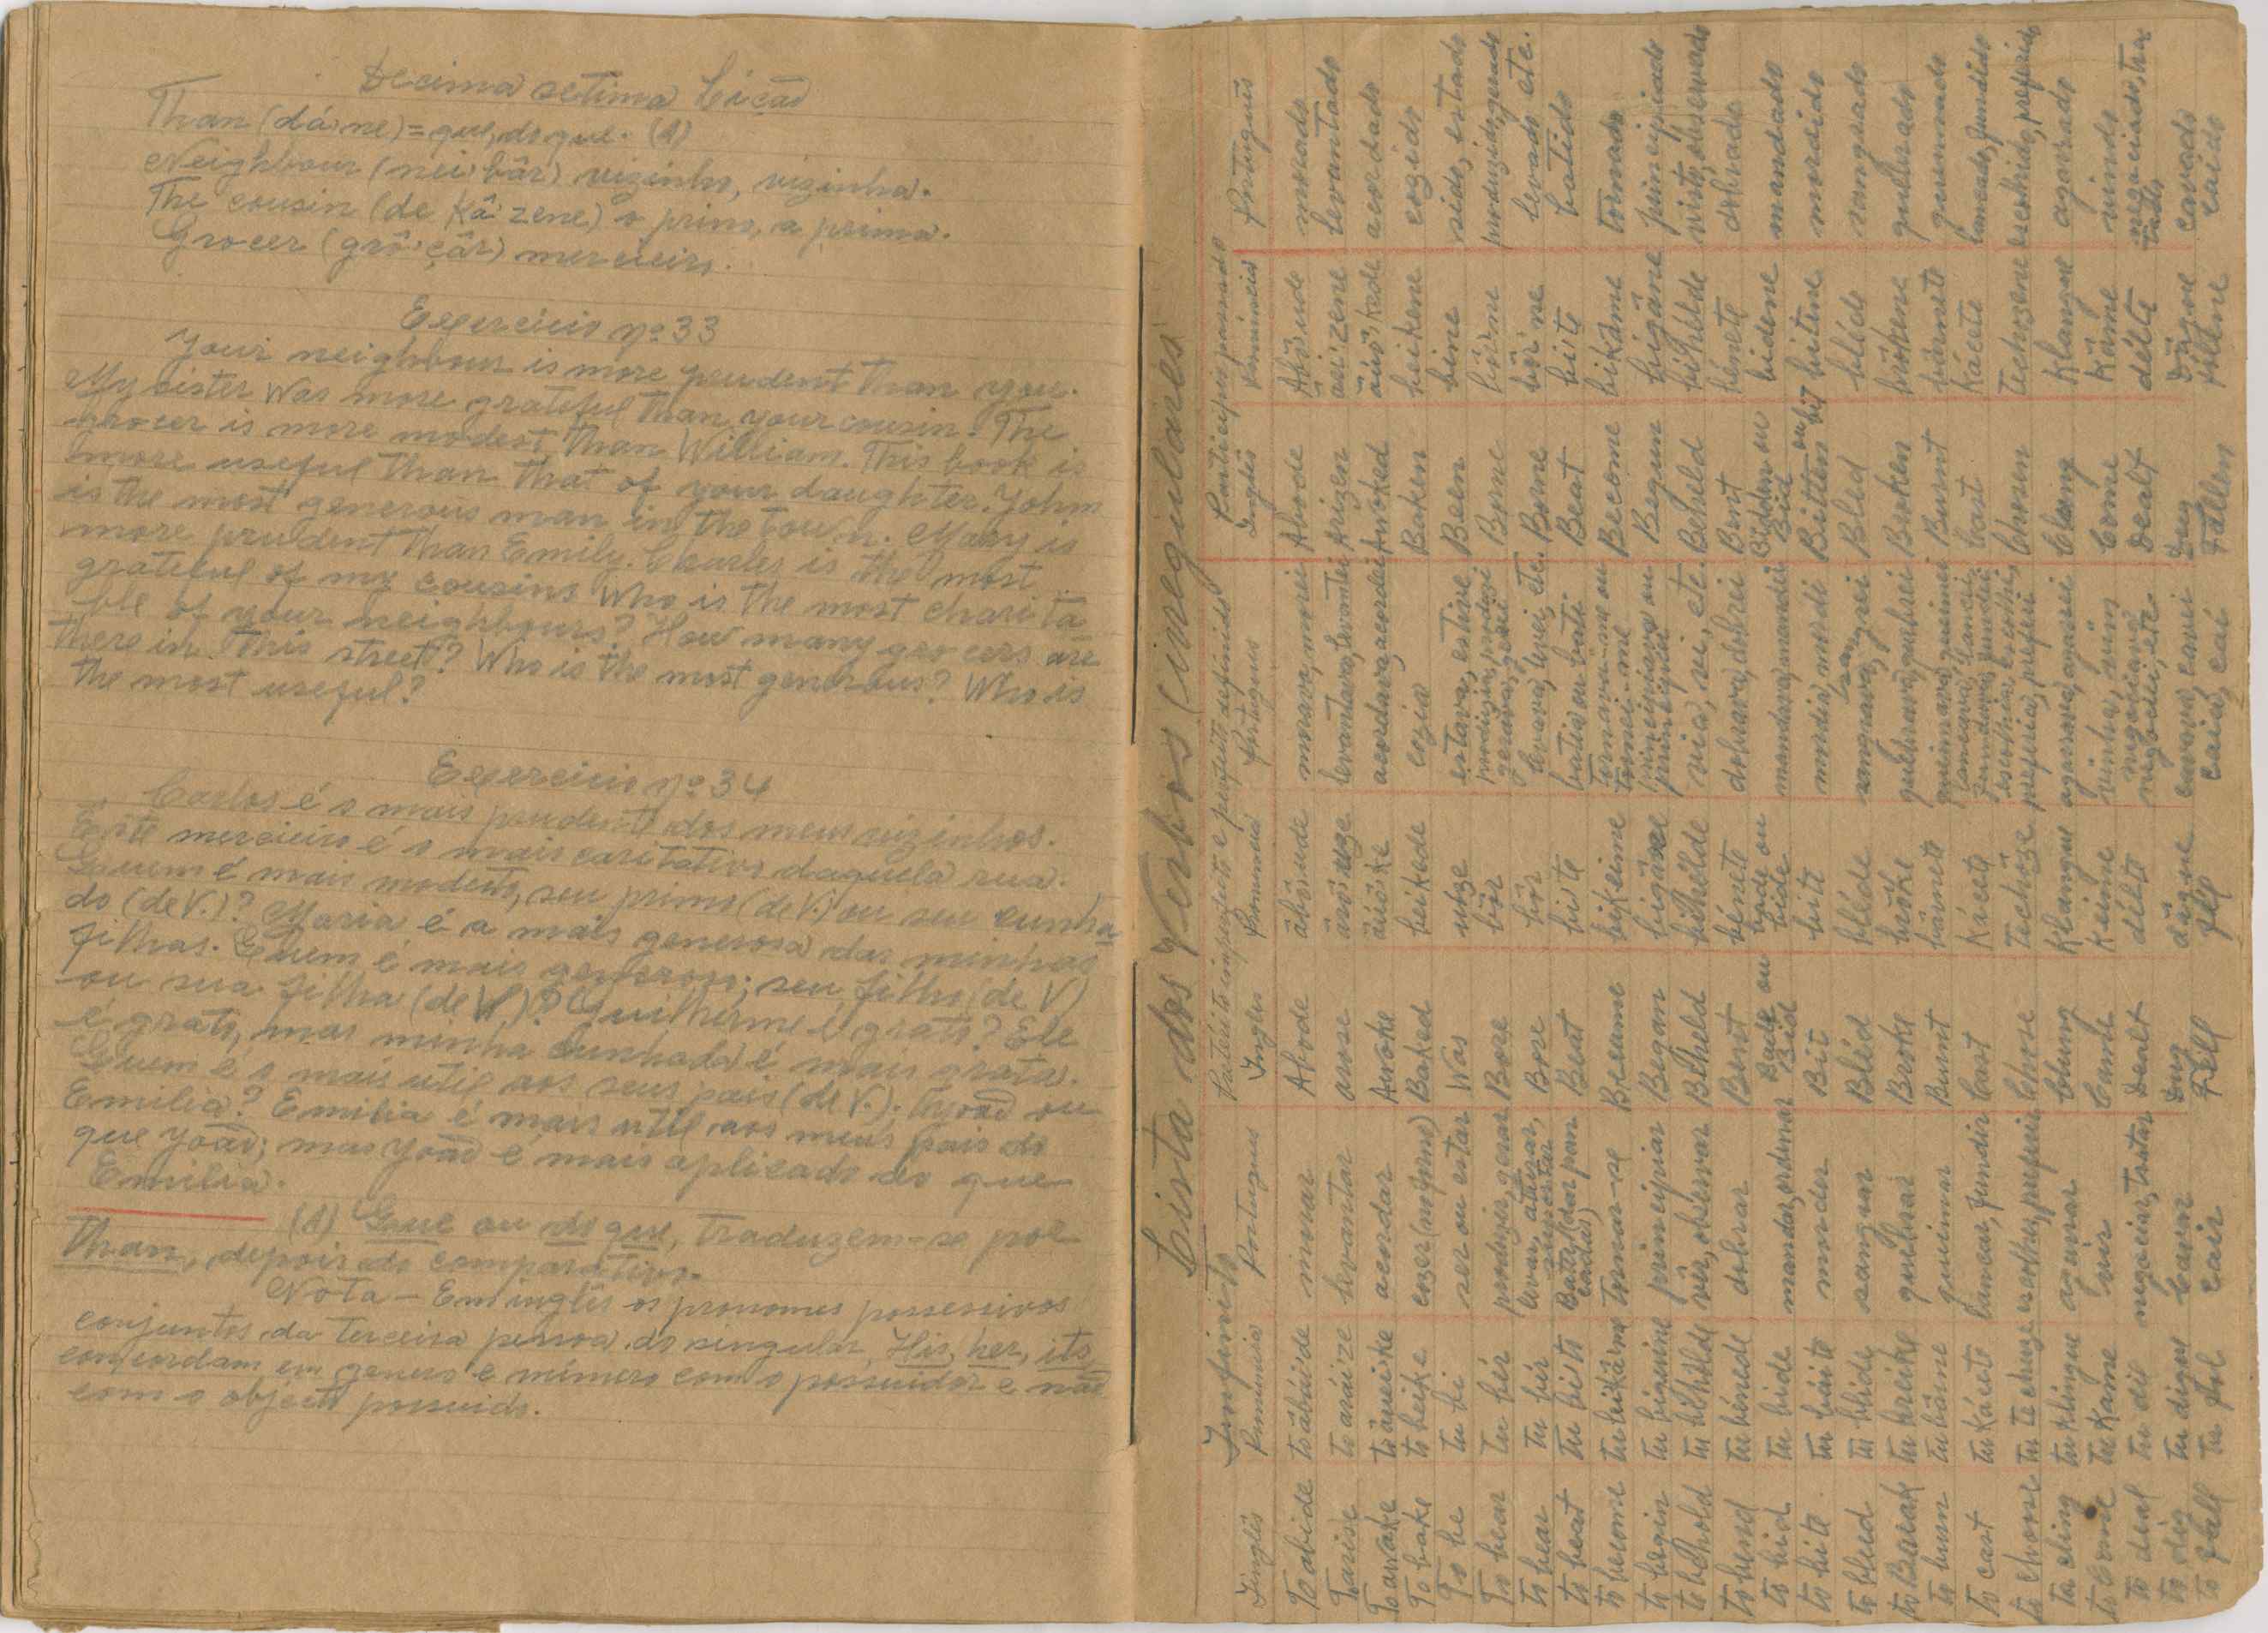 Decima setima Lição
Than (dá'ne) = que, do que. (A)
Neighbour (nei'bâr) vizinho, vizinha.
The cousin (de kâ'zene) o primo, a prima.
Grocer (grô'çâr) mercieiro.
Exercicio nº 33
Your neighbour is more prudent than you.
My sister was more grateful than your cousin. The
grocer is more modest than William. This book is
more useful than that of your daughter. John
is the most generous man in the town. Mary is
more prudent than Emily. Charles is the most
grateful of my cousins Who is the most charita
ble of your neighbours? How many grocers are
there in this street? Who is the most generous? Who is
the most useful?
Exercicio nº 34
Carlos é o mais prudente dos meus vizinhos.
Êste mercieiro é o mais caritativo daquela rua.
Quem é mais modesto, seu primo (de V.) ou seu cunha
do (de V.)? Maria é a mais generosa das minhas
filhas. Quem é mais generoso; seu filho (de V)
ou sua filha (de V.)? Guilherme é grato? Ele
é grato, mas minha cunhada é mais grata.
Quem é o mais util aos seus pais (de V.); João ou
Emilia? Emilia é mais util aos meus pais do
que João; mas João é mais aplicado do que
Emilia.
(A) Que ou do que, traduzem-se por
Than, depois do comparativo.
Nota - Em inglês os pronomes possessivos
conjuntos da terceira pessoa do singular, His, her, its
concordam em genero e número com o possuidor e não
com o objecto possuido.
Lista dos Verbos irregulares
Infinito Preterito imperfeito e perfeito definido Participio passado
Inglês Pronuncia Portugues Ingles Pronuncia Portugues Inglês Pronuncia Português
To abide morar Abode morava, morei Abode morado
To arise levantar arose levantava, levantei Arizen levantado
To awake acordar Awoke acordava, acordei Awoked acordado
To bake to beike cozer (no forno) Baked beikede cozia Baken beikene cozido
To be tu bi ser ou estar Was estava, estive Been bine sido, estado
To bear tu bér produzir, gerar Bore bôr produzia, produzi gerava, gerei Borne produzido, gerado
to bear tu bér levar, aturar, suportar Bore bôr levava, levei, etc. Borne levado etc.
to beat tu bite Bater (dar pancadas) Beat bite batia ou bati Beat bite batido
to become tornar-se Became bikeime tornava-me ou tornei-me Become tornado
to begin principiar Began principiava ou principiei Begun principiado
to behold vêr, observar Beheld via, vi, etc. Beheld visto, observado
to bend dobrar Bent bénete dobrava, dobrei Bent bénete dobrado
to bid tu bide mandar, ordenar Bade ou Bid bade ou bide mandava, mandei Bidden ou Bid bidene mandado
to bite tu báite morder Bit bite mordia, mordi Bitten ou bit bitene mordido
to bleed tu blide sangrar Bled bléde sangrava, sangrei Bled bléde sangrado
to Break tu breike quebrar Broke brôke quebrava, quebrei Broken brôkene quebrado
to burn tu bârne queimar Burnt bârnete queimava, queimei Burnt bârnete queimado
to cast tu kácete lancar, fundir Cast kácete lancava, lancei, fundava, fundei Cast kácete lancado, fundido
to choose escolher, preferir Chose escolhia, escolhi, preferia, preferi Chosen escolhido, preferido
to cling tu klingue agarrar Clung klangue agarrava, agarrei Clung klangue agarrado
to Come tu kâme vir Came keime vinha, vim Come kâme vindo
to deal tu dil negociar, tratar Dealt délte negociava, negociei, etc. Dealt délte negociado, tratado
to dig tu digue Cavar Dug dâgue cavava, cavei Dug dâgue cavado
to fall tu fól cair Fell fél caía, caí Fallen fólene caido